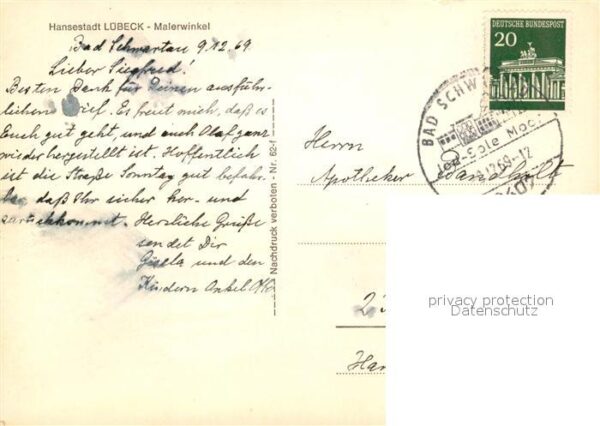 Hansestadt LÜBECK - Malerwinkel
Bad Schwartau 9.12.69.
Lieber Siegfried!
Besten Dank für Deinen ausführ-
lichen Brief. Es freut mich, daß es
Euch gut geht, und auch Olaf ganz
wieder hergestellt ist. Hoffentlich
ist die Straße Sonntag gut befahr-
bar, daß Ihr sicher her- und
zurückkommt. Herzliche Grüße
sendet Dir
Gisela und den
Kindern Onkel Otto
Nachdruck verboten - Nr. 62-f
DEUTSCHE BUNDESPOST
20
BAD SCHW
Jod-Sole Moor
12.69-12
Herrn
Apotheker
privacy protection
Datenschutz
Han